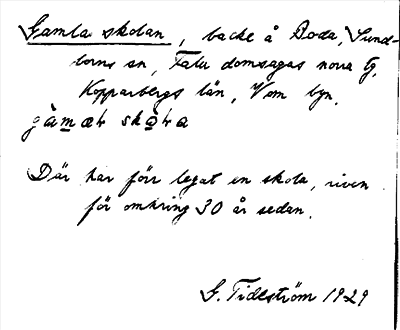 Gamla skolan, backe å Boda, Sund-
borns sn, Falu domsagas norra tg,
Kopparbergs län, V om byn.
Där har förr legat en skola, riven
för omkring 30 år sedan.
G. Tideström 1929